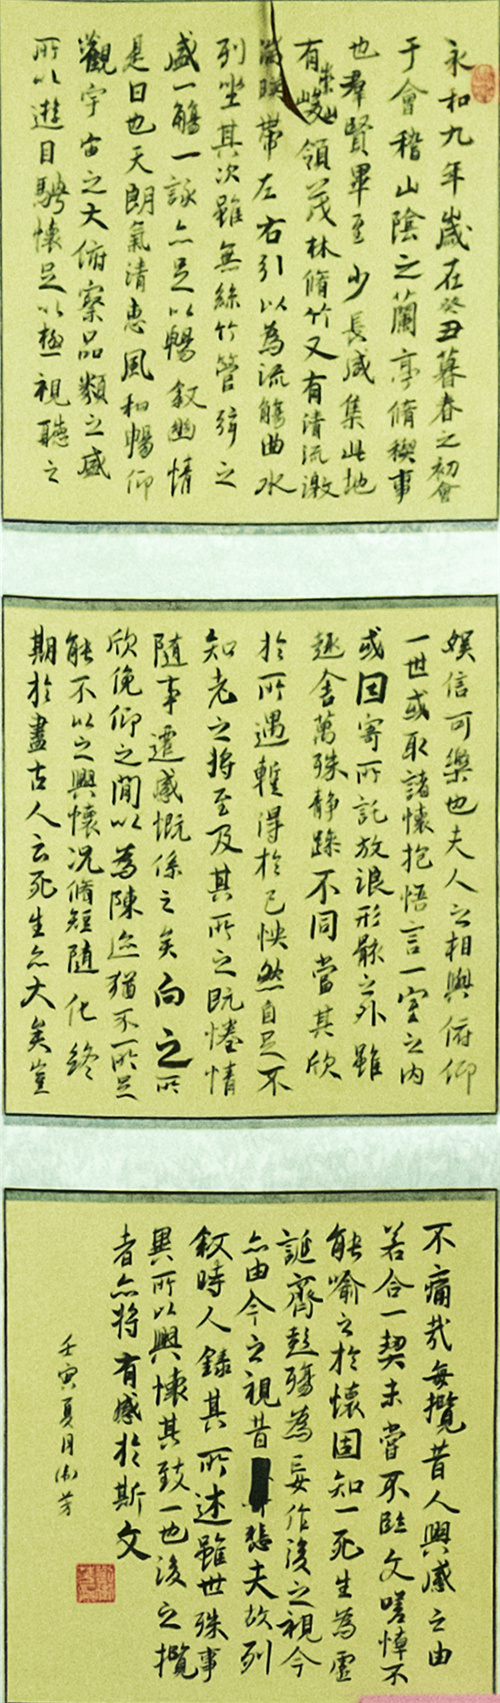 永和九年歲在癸丑暮春之初會
于會稽山陰之蘭亭脩稧事
也羣賢畢至少長咸集此地
有崇山峻領茂林脩竹又有清流激
湍暎帶左右引以為流觴曲水
列坐其次雖無絲竹管弦之
盛一觴一詠亦足以暢敘幽情
是日也天朗氣清惠風和暢仰
觀宇宙之大俯察品類之盛
所以遊目騁懷足以極視聽之
娛信可樂也夫人之相與俯仰
一世或取諸懷抱悟言一室之內
或因寄所託放浪形骸之外雖
趣舍萬殊静躁不同當其欣
於所遇暫得於己怏然自足不
知老之將至及其所之既惓情
隨事遷感慨係之矣向之所
欣俛仰之閒以為陳迹猶不所足
能不以之興懷況脩短隨化終
期於盡古人云死生亦大矣豈
不痛哉每攬昔人興感之由
若合一契未嘗不臨文嗟悼不
能喻之於懷固知一死生為虛
誕齊彭殤為妄作後之視今
亦由今之視昔悲夫故列
敘時人錄其所述雖世殊事
異所以興懷其致一也後之攬
者亦將有感於斯文
壬寅夏月淑芳